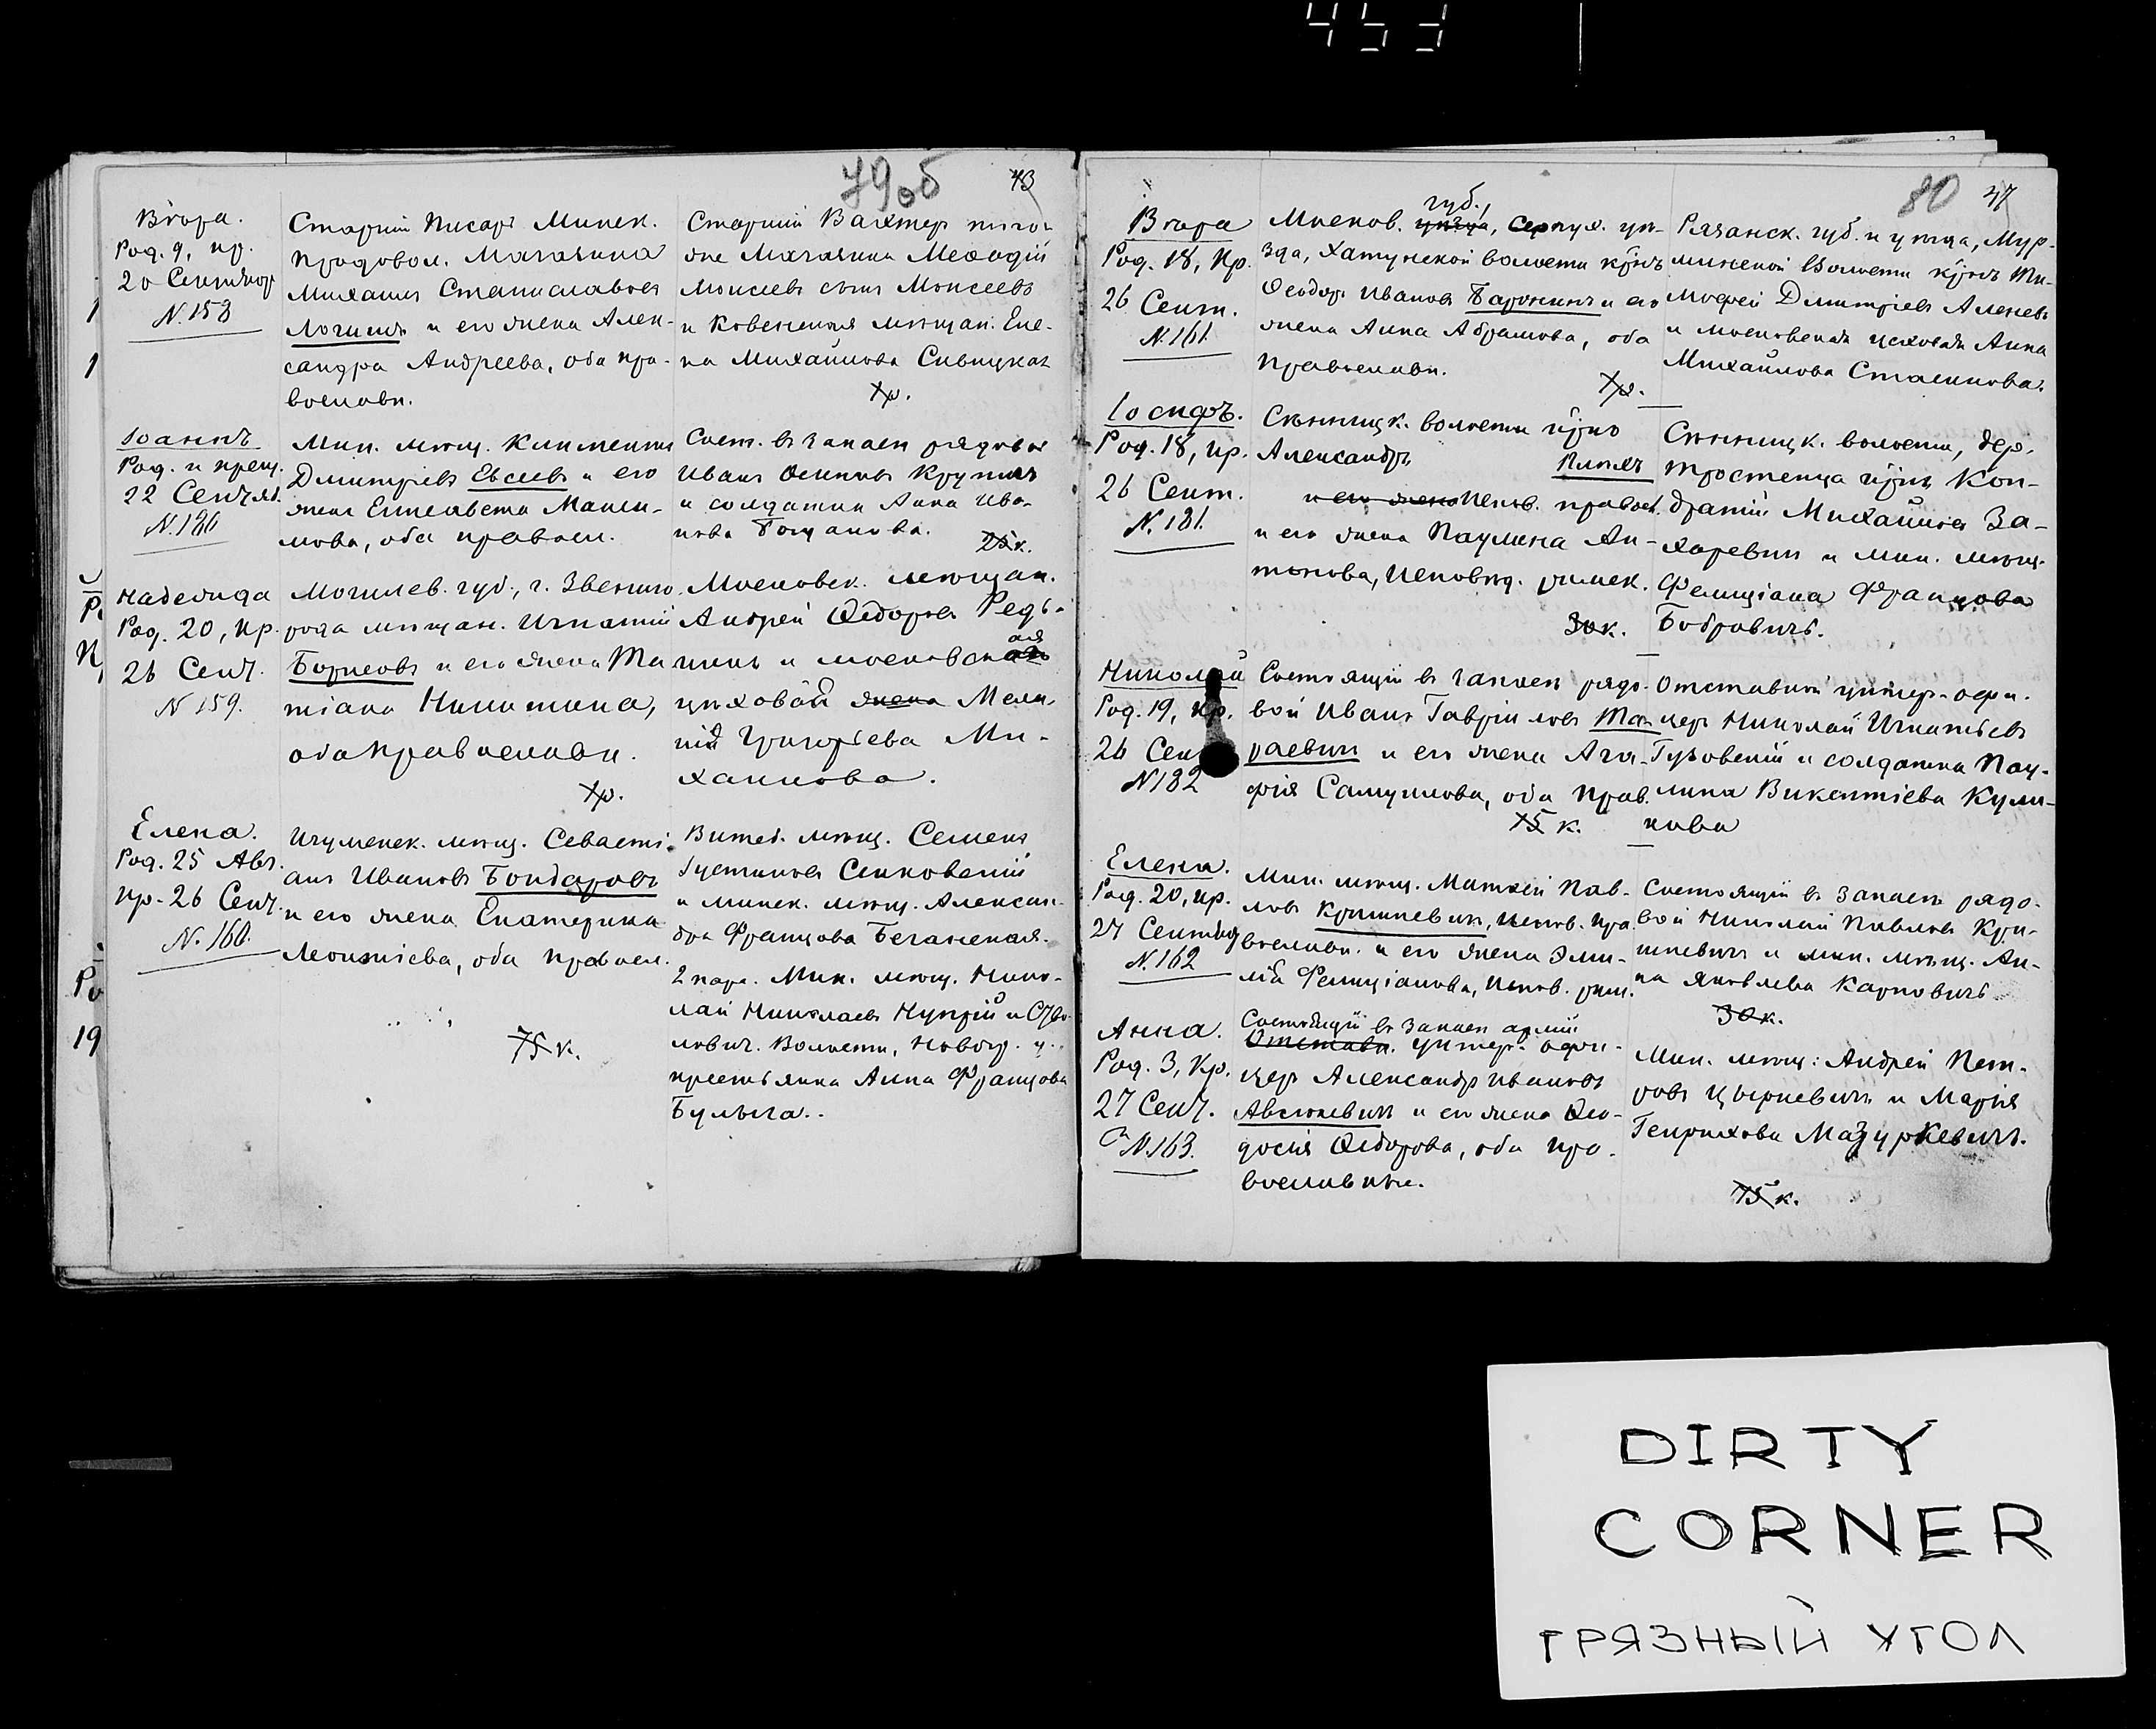 79об 43
Вѣра.
Род. 9, кр.
20 Сентябр
N. 158
Старшій Писарь Минск.
продовол. Магазина
Михаилъ Станиславовъ
Логинъ и его жена Алек-
сандра Андреева, оба пра-
вославн.
Старшій Вахтер того-
же Магазина Меѳодій
Моисеевъ сынъ Моисеевъ
и Ковенская мѣщан. Еле-
на Михайлова Сивицкая
1р.
Іоаннъ
Род. и крещ.
22 Сентяб.
N. 180
Мин. мѣщ. Климентій
Димитріевъ Евсеевъ и его
жена Елисавета Макси-
мова, оба правосл.
Сост. въ запасѣ рядовой
Иванъ Осиповъ Крупичъ
и солдатка Анна Ива-
нова Боцанова.
25к.
Надежда
Род. 20, кр.
26 Сент.
N 159.
Могилев. губ., г. Звениго
рода мѣщан. Игнатій
Борисовъ и его жена Та
тіана Никитина,
оба православн.
1р.
Московск. мѣщан.
Андрей Ѳедоровъ Редь-
кинъ и московская
цеховой жена Мела-
нія Григорьева Ми-
хайлова.
Елена.
Род. 25 Авг.
кр. 26 Сент.
N. 160.
Игуменск. мѣщ. Севасті-
анъ Ивановъ Бондаровъ
и его жена Екатерина
Леонтіева, оба правосл.
75к.
Витеб. мѣщ. Семенъ
Іустиновъ Синковскій
и минск. мѣщ. Алексан-
дра Францова Беганская.
2 пара. Мин. мѣщ. Нико-
лай Николаевъ Купрій и
лович. Волости, Новогр. у.
крестьянка Анна Францова
Булыга..
80 47
Вѣра
Род. 18, Кр.
26 Сент.
N. 161.
губ.,
Москов. уѣзда, Серпух. уѣ-
зда, Хатунской волости кр-нъ
Ѳеодоръ Ивановъ Баронинъ и его
жена Анна Абрамова, оба
православн.
1р.
Рязанск. губ. и уѣзда, Мур-
минской Волости кр-нъ Ти-
моѳей Димитріевъ Аленевъ
и московская цеховая Анна
Михайлова Стасинова.
Іосифъ.
Род. 18, кр.
26 Сент.
N. 181.
Сѣнницк. волости кр-нъ
Александръ Пиляк
и его жена Испов. правосл.
и его жена Паулина Ан-
тонова, Исповѣд. римск.
30к.
Сѣнницк. волости, дер.
Тростенца кр-нъ Кон-
дратій Михайловъ За-
харевичъ и мин. мѣщ.
Фелиціана Францова
Бобровичъ.
Николай
Род. 19, кр.
26 Сент
N 182
Состоящій въ запасѣ рядо-
вой Иванъ Гавріиловъ Та-
раевичъ и его жена Ага-
фія Самуилова, оба прав.
75к.
Отставной унтер-офи-
церъ Николай Игнатьевъ
Гузовскій и солдатка Пау-
лина Викентіева Кули-
кова
Елена.
Род. 20, кр.
27 Сентяб
N. 162
Мин. мѣщ. Матвій Пав-
ловъ Кришневичъ, испов. пра
вославн. и его жена Эми-
лія Фелиціанова, Испов. рим.
30к.
Состоящій въ запасѣ рядо-
вой Николай Павловъ Кри-
шневичъ и мин. мѣщ. Ан-
на Яковлева Карповичъ
Анна.
Род. 3, Кр.
27 Сент.
N. 163.
Состоящій въ запасѣ арміи
Отставн. унтер-офи-
церъ Александръ Ивановъ
Авсюкевичъ и его жена Ѳео-
досія Ѳедорова, оба пра-
вославные.
Мин. мѣщ: Андрей Пет-
ровъ Цыркевичъ и Марія
Генрихова Мазуркевичъ.
75к.
DIRTY
CORNER
ГРЯЗНЫЙ УГОЛ